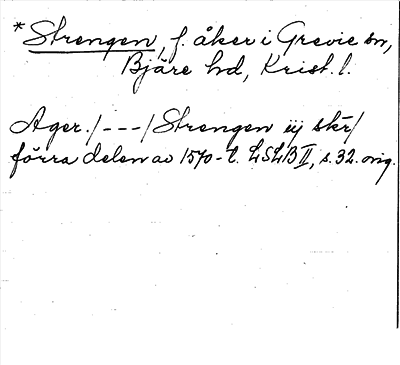 * Strengen, f. åker i Grevie sn,
Bjäre hd, Krist. l.
Ager./---/Strengen iij skr/
förra delen av 1570-t. LSLB II, s. 32. orig.